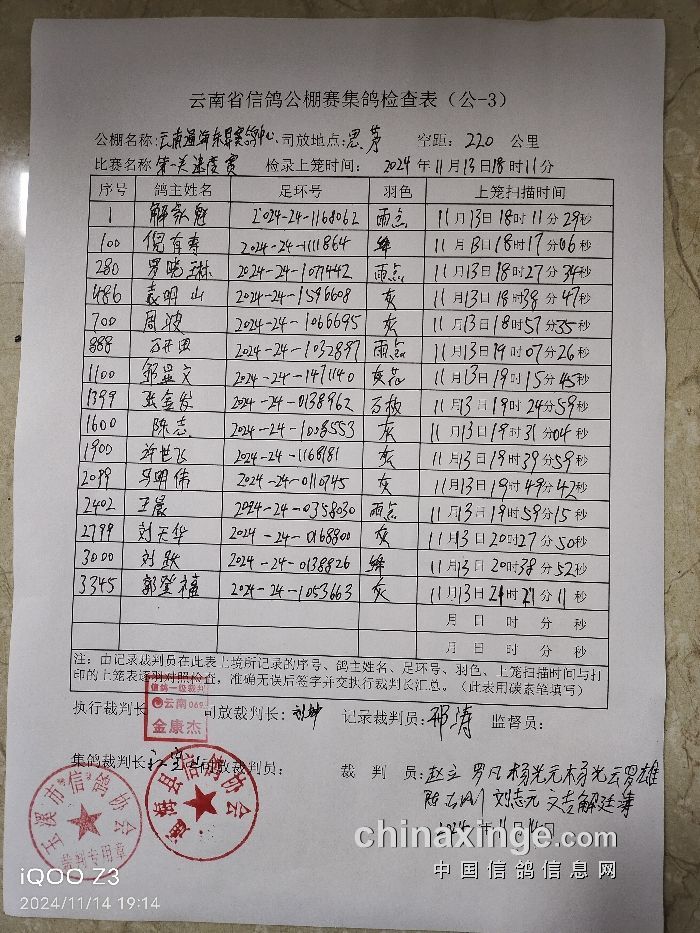 云南省信鸽公棚赛集鸽检查表（公-3）
公棚名称: 云南通海东昇赛鸽中心 司放地点: 思茅 空距: 220 公里
比赛名称 第一关速度赛 检录上笼时间: 2024 年 11 月 13 日 18 时 11 分
序号 鸽主姓名 足环号 羽色 上笼扫描时间
1 解家魁 2024-24-1168062 雨点 11月13日18时11分29秒
100 倪有寿 2024-24-1111864 绛 11月13日18时17分06秒
280 罗晓琳 2024-24-1077442 雨点 11月13日18时27分34秒
486 袁明山 2024-24-1596608 灰 11月13日18时38分47秒
700 周波 2024-24-1066695 灰 11月13日18时57分35秒
888 万开田 2024-24-1032897 雨点 11月13日19时07分26秒
1100 邹显文 2024-24-1471140 灰花 11月13日19时15分45秒
1399 张金发 2024-24-0138962 石板 11月13日19时24分59秒
1600 陈志 2024-24-1008553 灰 11月13日19时31分04秒
1900 许世飞 2024-24-1168181 灰 11月13日19时39分59秒
2099 马明伟 2024-24-0110745 灰 11月13日19时49分42秒
2402 王晨 2024-24-0358030 雨点 11月13日19时59分15秒
2799 刘天华 2024-24-0168800 灰 11月13日20时27分50秒
3000 刘跃 2024-24-0138826 绛 11月13日20时38分52秒
3345 郭登福 2024-24-1053663 灰 11月13日21时21分11秒
月 日 时 分 秒
月 日 时 分 秒
注: 由记录裁判员在此表上填所记录的序号、鸽主姓名、足环号、羽色、上笼扫描时间与打
印的上笼表逐羽对照检查，准确无误后签字并交执行裁判长汇总。（此表用碳素笔填写）
信鸽一级裁判
云南069
金康杰
执行裁判长 司放裁判长: 记录裁判员: 邓涛 监督员:
集鸽裁判长 司放裁判员: 裁 判 员: 赵立 罗凡 杨光元 杨光云 罗雄
刘志元 文吉 解廷寿
2024年11月14日
玉溪市信鸽协会
裁判专用章
通海县信鸽协会
chinaxinge.com
中国信鸽信息网
iQOO Z3
2024/11/14 19:14